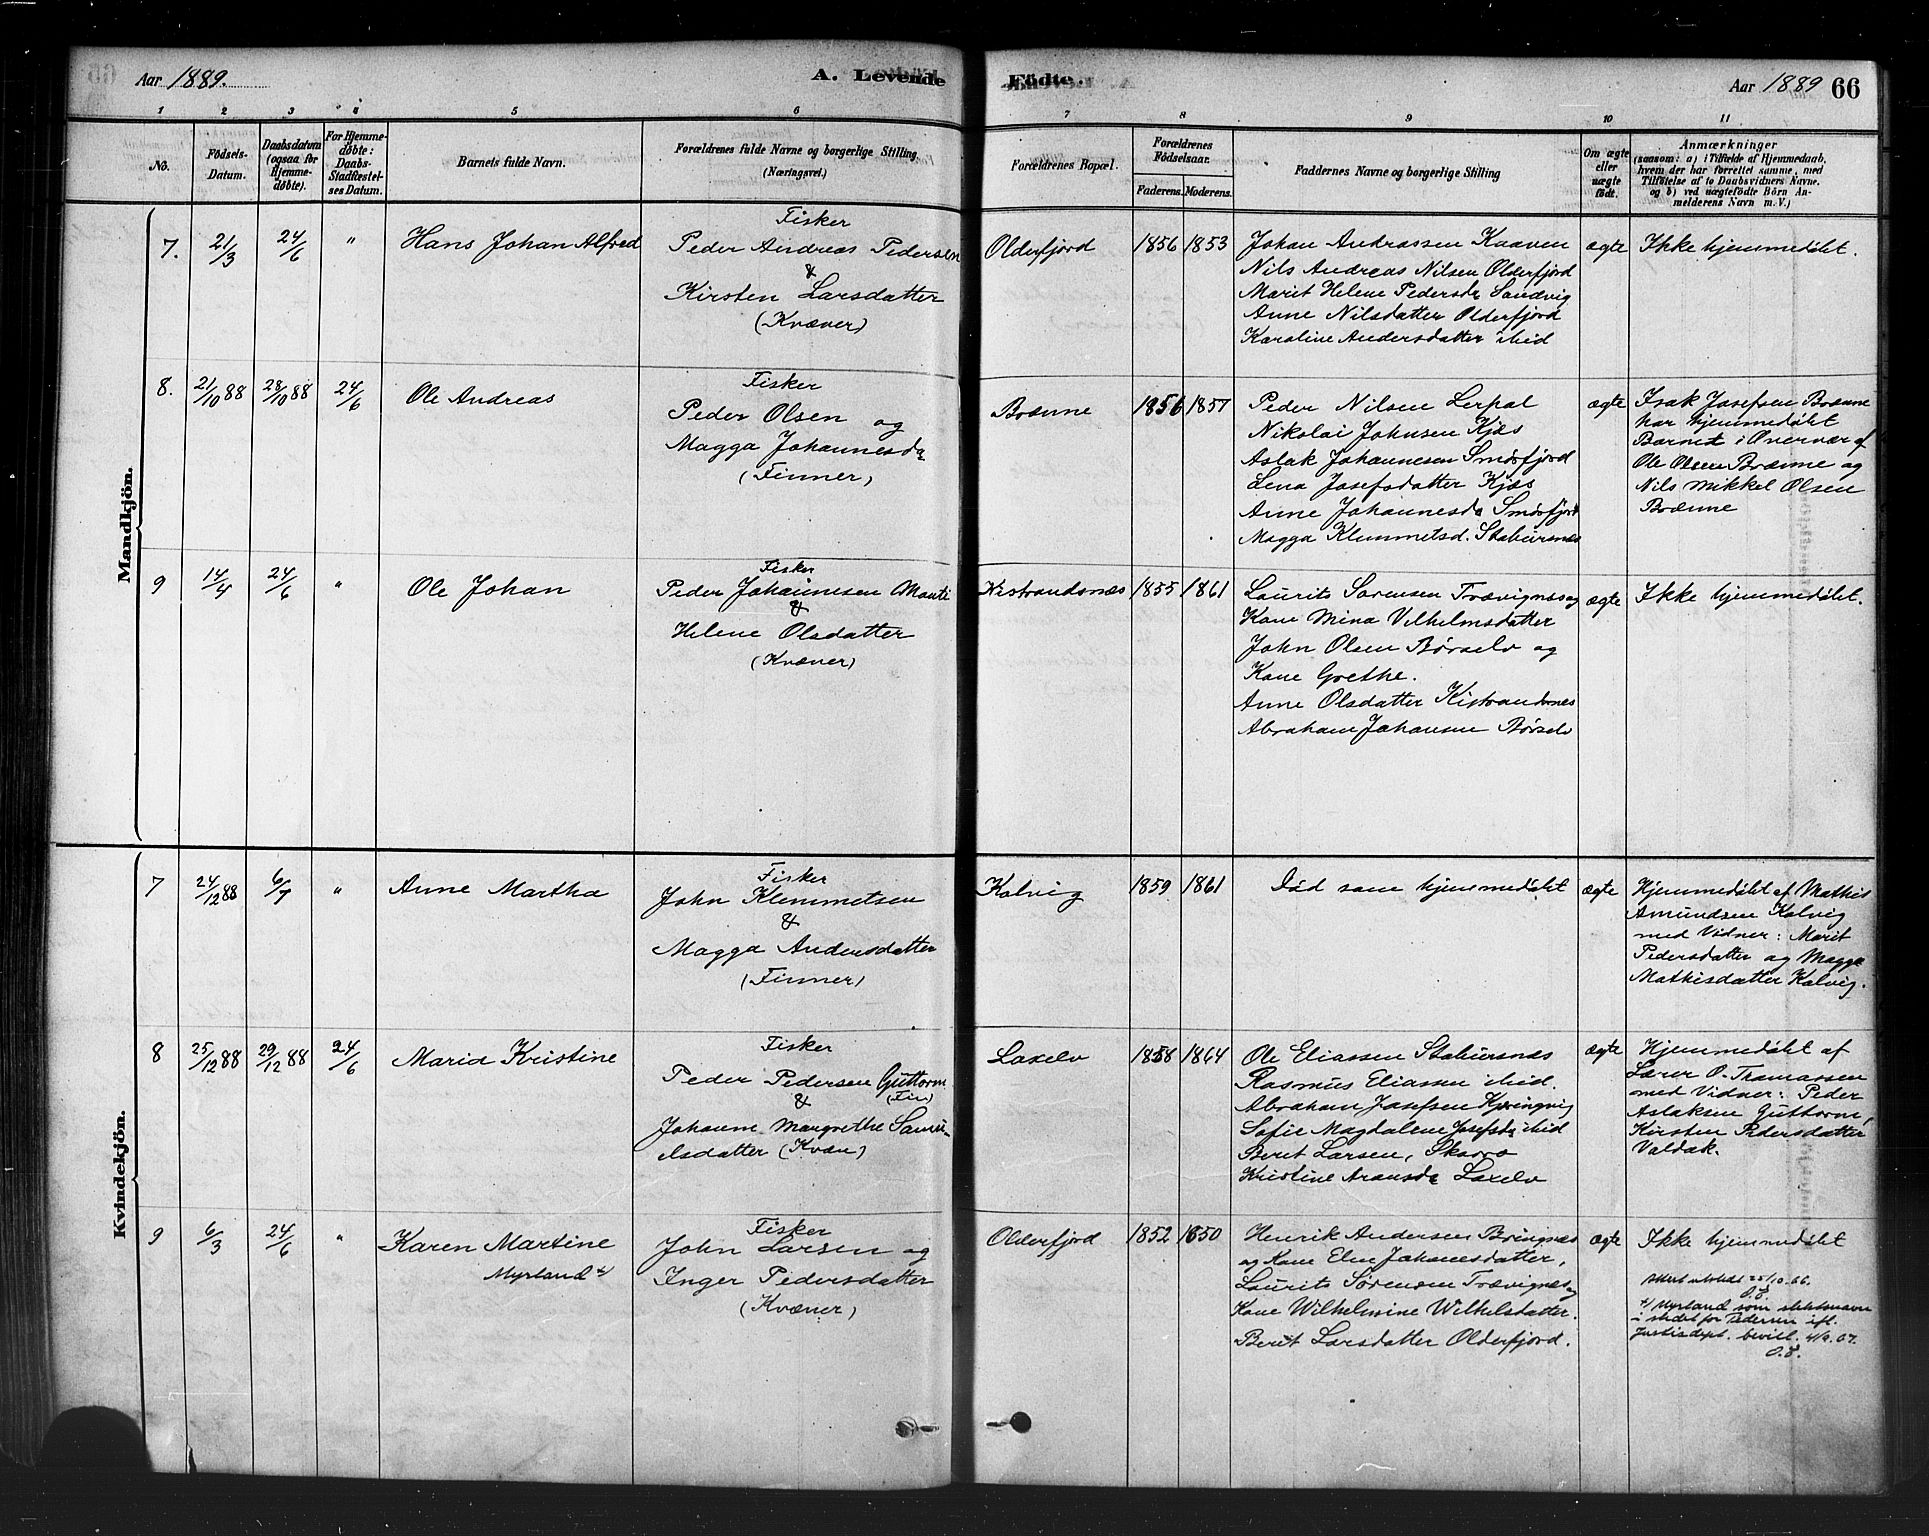 Aar 1889.
A. Levende
Födte.
Aar 1889 66
1 2 3 4 5 6 7 8 9 10 11
No.
Födsels-
Datum.
Daabsdatum
(ogsaa för
Hjemme-
döbte).
For Hjemme-
döbte:
Daabs-
Stadfæstel-
ses Datum.
Barnets fulde Navn.
Forældrenes fulde Navne og borgerlige Stilling.
(Næringsvei.)
Forældrenes Bopæl.
Forældrenes
Födselsaar.
Faderens. Moderens.
Faddernes Navne og borgerlige Stilling
Om ægte
eller
uægte
födt.
Anmærkninger
(saasom: a) i Tilfælde af Hjemmedaab,
hvem der har forrettet samme, med
Tilföielse af to Daabsvidners Navne.
og b) ved uægtefödte Börn An-
melderens Navn m. V.)
Mandkjön.
7. 21/3 24/6 " Hans Johan Alfred
Fisker
Peder Andreas Pedersen
&
Kirsten Larsdatter
(Kvæner)
Olderfjord 1856 1853
Johan Andreassen Kaaven
Nils Andreas Nilsen Olderfjord
Marit Helene Pedersdr Sandvig
Anne Nilsdatter Olderfjord
Karoline Andersdatter ibid
ægte Ikke hjemmedøbt.
8. 21/10 88 28/10 88 24/6 Ole Andreas
Fisker
Peder Olsen og
Magga Johannesdr
(Finner)
Brænne 1856 1857
Peder Nilsen Lerpal
Nikolai Johnsen Kjæs
Aslak Johannesen Smørfjord
Lena Josefsdatter Kjæs
Anne Johannesdr Smørfjord
Magga Klemmetsd. Stabursnæs
ægte Isak Josefsen Brænne
har hjemmedøbt
Barnet i Overvær af
Ole Olsen Brænne og
Nils Mikkel Olsen
Brænne
9 14/4 24/6 " Ole Johan
Fisker
Peder Johannesen Manti
&
Helene Olsdatter
(Kvæner)
Kistrandsnæs 1855 1861
Laurits Sørensen Trævignæs og
Kone Mina Vilhelmsdatter
John Olsen Børselv og
Kone Grethe.
Anne Olsdatter Kistrandsnæs
Abraham Johansen Børselv
ægte Ikke hjemmedøbt.
Kvindekjön.
7 24/12 88 6/7 " Anne Martha
Fisker
John Klemmetsen
&
Magga Andersdatter
(Finner)
Kolvig 1859 1861
Død som hjemmedøbt
ægte Hjemmedøbt af Mathis
Amundsen Kolvig
med Vidner: Marit
Pedersdatter og Magga
Mathisdatter Kolvig.
8 25/12 88 29/12 88 24/6 Maria Kristine
Fisker
Peder Pedersen Guttorm
(Fin)
&
Johanne Margrethe Samu-
elsdatter (Kvæn)
Laxelv 1858 1864
Ole Eliassen Stabursnæs
Rasmus Eliassen ibid.
Abraham Josefsen Kjæringvig
Sofie Magdalene Josefsdr ibid
Beret Larsen, Skoorø
Kristine Aronsdr Laxelv
ægte Hjemmedøbt af
Lærer O. Thomassen
med Vidner: Peder
Aslaksen Guttorm,
Kirsten Pedersdatter
Valdak.
9 6/3 24/6 " Karen Martine
Myrland
Fisker
John Larsen og
Inger Pedersdatter
(Kvæner)
Olderfjord 1852 1850
Henrik Andersen Bringnæs
og Kone Elen Johannesdatter,
Laurits Sørensen Trævignæs og
Kone Wilhelmine Wilhelsdatter.
Beret Larsdatter Olderfjord.
ægte Ikke hjemmedøbt
Attest utstedt 25/10.66.
Myrland som slektsnavn
i stedet for Pedersen ifl.
Justisdept. bevill. 4/9.07.